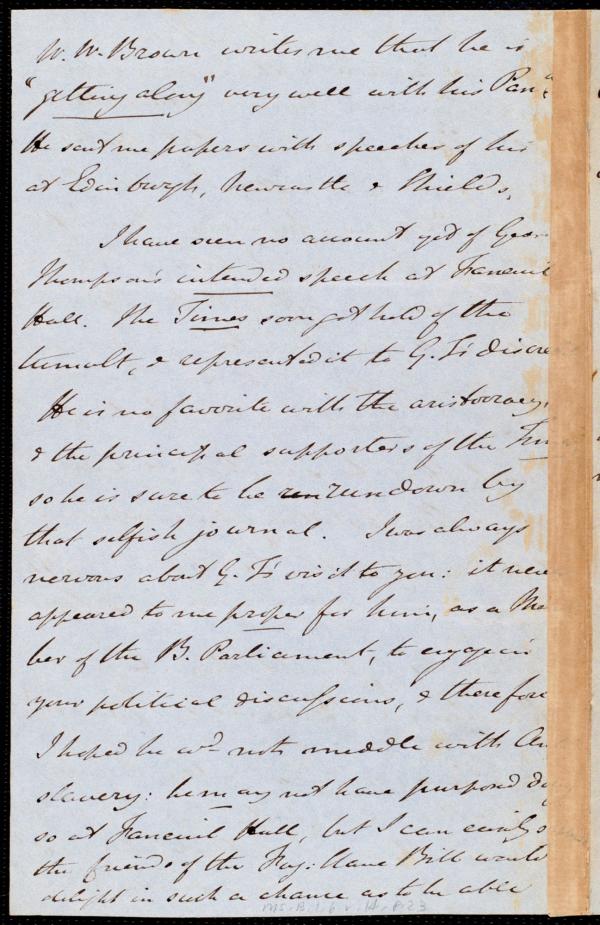 W. W. Brown writes me that he is
"getting along" very well with his Pan
He sent me papers with speeches of his
at Edinburgh, Newcastle & Shields.
I have seen no account yet of Geo
Thompson's intended speech at Faneuil
Hall. The Times soon got hold of the
tumult, & represented it to G. T's discre
He is no favorite with the aristocracy,
& the principal supporters of the Tim
so he is sure to be run run down by
that selfish journal. I was always
nervous about G. T's visit to you: it neve
appeared to me proper for him, as a Mem
ber of the B. Parliament, to engage in
your political discussions, & therefore
I hoped he wd. not meddle with An
slavery: he may not have purposed do
so at Faneuil Hall, but I can easily
the friends of the Fug: Slave Bill would
delight in such a chance as to be able
MS. B. 1. 6 v. 14. p. 23